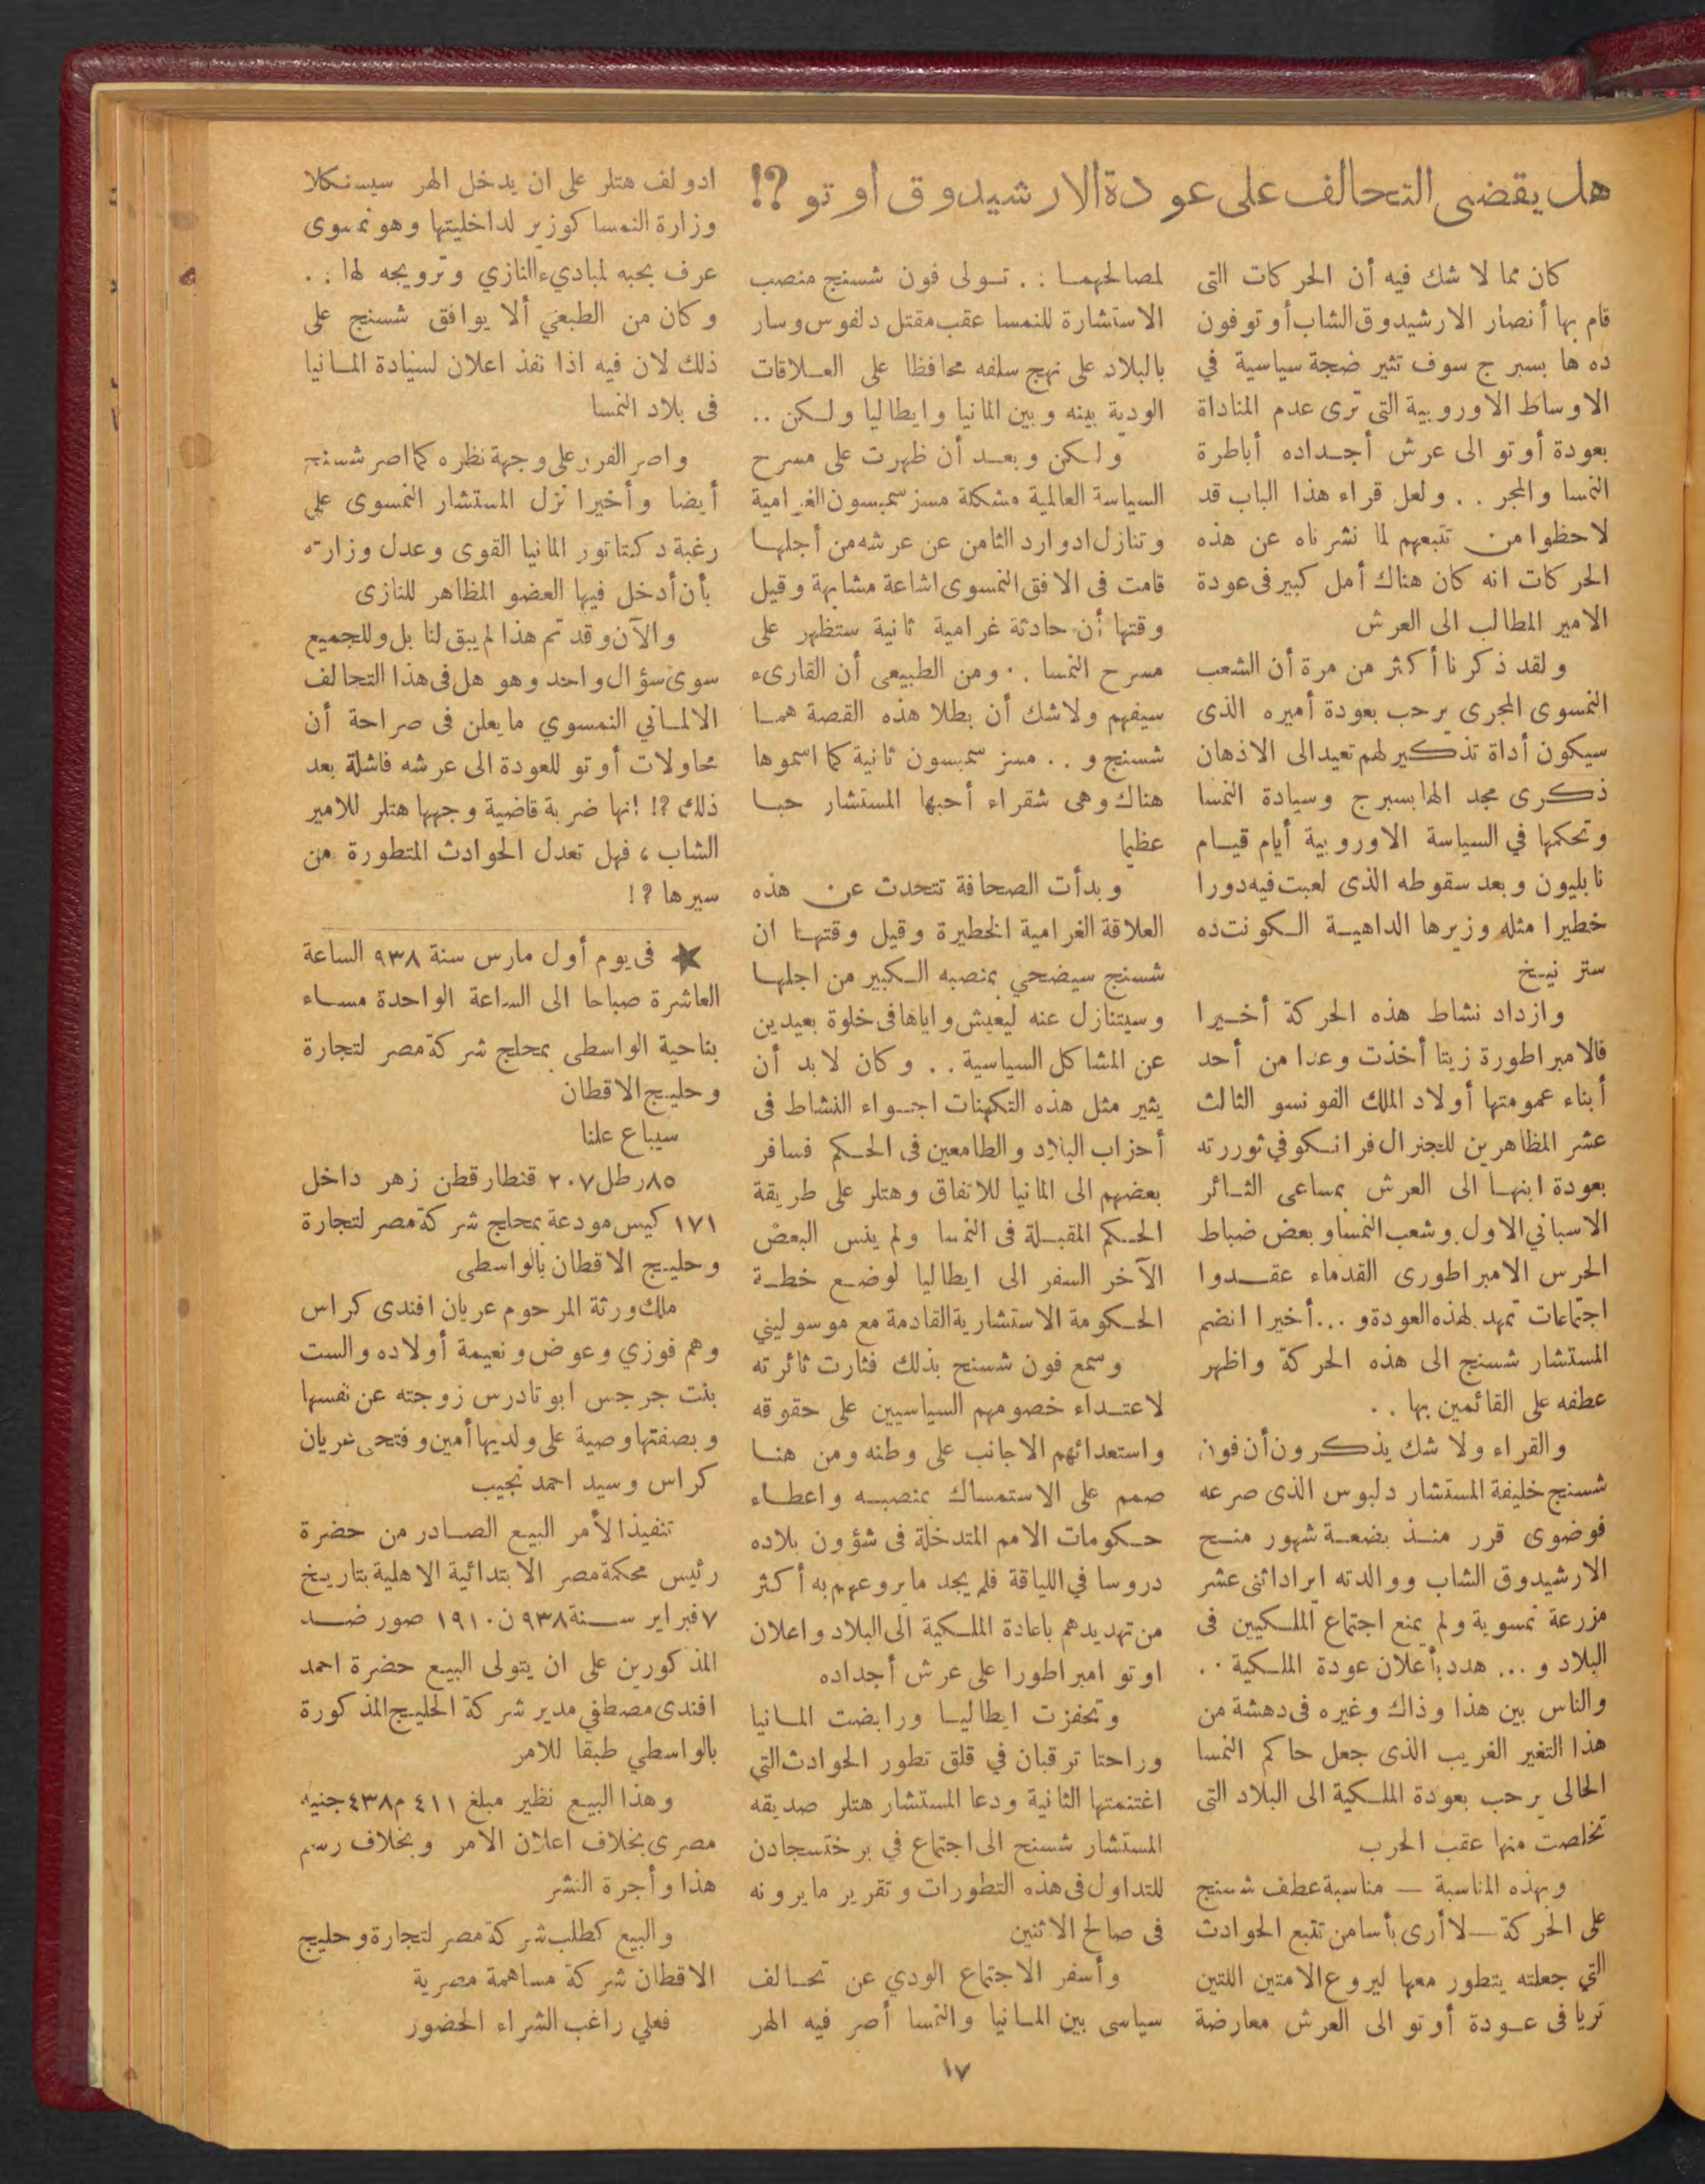 هل يقضى التحالف على عودة الارشيدوق اوتو ؟!
كان مما لا شك فيه أن الحركات التى
قام بها أنصار الارشيدوق الشاب أوتو فون
ده ها بسبرج سوف تثير ضجة سياسية في
الاوساط الاوروبية التى ترى عدم المناداة
بعودة أوتو الى عرش أجداده أباطرة
النمسا والمجر . . ولعل قراء هذا الباب قد
لاحظوا من تتبعهم لما نشرناه عن هذه
الحركات انه كان هناك أمل كبير فى عودة
الامير المطالب الى العرش
ولقد ذكرنا أكثر من مرة أن الشعب
النمسوى المجرى يرحب بعودة أميره الذى
سيكون أداة تذكير لهم تعيد الى الاذهان
ذكرى مجد الهابسبرج وسيادة النمسا
وتحكمها في السياسة الاوروبية أيام قيام
نابليون وبعد سقوطه الذى لعبت فيه دورا
خطيرا مثله وزيرها الداهية الكونت ده
ستر نيخ
وازداد نشاط هذه الحركة أخيرا
فالامبراطورة زيتا أخذت وعدا من أحد
أبناء عمومتها أولاد الملك الفونسو الثالث
عشر المظاهرين للجنرال فرانكو في ثورته
بعودة ابنها الى العرش بمساعى الثائر
الاسباني الاول وشعب النمسا وبعض ضباط
الحرس الامبراطورى القدماء عقدوا
اجتماعات تمهد لهذه العودة و ... أخيرا انضم
المستشار شسنج الى هذه الحركة واظهر
عطفه على القائمين بها . .
والقراء ولا شك يذكرون أن فون
شسنج خليفة المستشار دلبوس الذى صرعه
فوضوى قرر منذ بضعة شهور منح
الارشيدوق الشاب ووالدته ايراد اثنى عشر
مزرعة نمسوية ولم يمنع اجتماع الملكيين فى
البلاد و ... هدد بأعلان عودة الملكية . .
والناس بين هذا وذاك وغيره فى دهشة من
هذا التغير الغريب الذى جعل حاكم النمسا
الحالى يرحب بعودة الملكية الى البلاد التى
تخلصت منها عقب الحرب
وبهذه المناسبة — مناسبة عطف شسنج
على الحركة — لا أرى بأسا من تتبع الحوادث
التي جعلته يتطور معها ليروع الامتين اللتين
تريا فى عودة أوتو الى العرش معارضة
لمصالحهما . . تولى فون شسنج منصب
الاستشارة للنمسا عقب مقتل دلفوس وسار
بالبلاد على نهج سلفه محافظا على العلاقات
الودية بينه وبين المانيا وايطاليا ولكن ..
ولكن وبعد أن ظهرت على مسرح
السياسة العالمية مشكلة مسز سمبسون الغرامية
وتنازل ادوارد الثامن عن عرشه من أجلها
قامت فى الافق النمسوى اشاعة مشابهة وقيل
وقتها أن حادثة غرامية ثانية ستظهر على
مسرح النمسا . . ومن الطبيعى أن القارىء
سيفهم ولاشك أن بطلا هذه القصة هما
شسنج و . . مسز سمبسون ثانية كما اسموها
هناك وهى شقراء أحبها المستشار حبا
عظيما
وبدأت الصحافة تتحدث عن هذه
العلاقة الغرامية الخطيرة وقيل وقتها ان
شسنج سيضحي بمنصبه الكبير من اجلها
وسيتنازل عنه ليعيش واياها فى خلوة بعيدين
عن المشاكل السياسية . . وكان لا بد أن
يثير مثل هذه التكهنات اجواء النشاط فى
أحزاب البلاد والطامعين فى الحكم فسافر
بعضهم الى المانيا للاتفاق وهتلر على طريقة
الحكم المقبلة فى النمسا ولم ينس البعض
الآخر السفر الى ايطاليا لوضع خطة
الحكومة الاستشارية القادمة مع موسوليني
وسمع فون شسنج بذلك فثارت ثائرته
لاعتداء خصومهم السياسيين على حقوقه
واستعدائهم الاجانب على وطنه ومن هنا
صمم على الاستمساك بمنصبه واعطاء
حكومات الامم المتدخلة فى شؤون بلاده
دروسا في اللياقة فلم يجد ما يروعهم به أكثر
من تهديدهم باعادة الملكية الى البلاد واعلان
اوتو امبراطورا على عرش أجداده
وتحفزت ايطاليا ورابضت المانيا
وراحتا ترقبان في قلق تطور الحوادث التي
اغتنمتها الثانية ودعا المستشار هتلر صديقه
المستشار شسنج الى اجتماع في برختسجادن
للتداول فى هذه التطورات وتقرير ما يرونه
فى صالح الاثنين
وأسفر الاجتماع الودي عن تحالف
سياسى بين المانيا والنمسا أصر فيه الهر
ادولف هتلر على ان يدخل الهر سيسنكلا
وزارة النمسا كوزير لداخليتها وهو نمسوى
عرف بحبه لمباديء النازي وترويجه لها . .
وكان من الطبعي ألا يوافق شسنج على
ذلك لان فيه اذا نفذ اعلان لسيادة المانيا
فى بلاد النمسا
واصر الفرر على وجهة نظره كما اصر شسنج
أيضا وأخيرا نزل المستشار النمسوى على
رغبة دكتاتور المانيا القوى وعدل وزارته
بأن أدخل فيها العضو المظاهر للنازى
والآن وقد تم هذا لم يبق لنا بل وللجميع
سوى سؤال واحد وهو هل فى هذا التحالف
الالمانى النمسوي ما يعلن فى صراحة أن
محاولات أوتو للعودة الى عرشه فاشلة بعد
ذلك ؟! انها ضربة قاضية وجهها هتلر للامير
الشاب ، فهل تعدل الحوادث المتطورة من
سيرها ؟!
★ فى يوم أول مارس سنة ٩٣٨ الساعة
العاشرة صباحا الى الساعة الواحدة مساء
بناحية الواسطى بمحلج شركة مصر لتجارة
وحليج الاقطان
سيباع علنا
٨٥ رطل ٢٠٧ قنطار قطن زهر داخل
١٧١ كيس مودعة بمحلج شركة مصر لتجارة
وحليج الاقطان بالواسطى
ملك ورثة المرحوم عريان افندى كراس
وهم فوزي وعوض ونعيمة أولاده والست
بنت جرجس ابو تادرس زوجته عن نفسها
وبصفتها وصية على ولديها أمين وفتحى عريان
كراس وسيد احمد نجيب
تنفيذا لأمر البيع الصادر من حضرة
رئيس محكمة مصر الابتدائية الاهلية بتاريخ
٧ فبراير سنة ٩٣٨ ن ١٩١٠ صور ضد
المذكورين على ان يتولى البيع حضرة احمد
افندى مصطفي مدير شركة الحليج المذكورة
بالواسطي طبقا للامر
وهذا البيع نظير مبلغ ٤١١ م ٤٣٨ جنيه
مصرى بخلاف اعلان الامر وبخلاف رسم
هذا وأجرة النشر
والبيع كطلب شركة مصر لتجارة وحليج
الاقطان شركة مساهمة مصرية
فعلي راغب الشراء الحضور
١٧